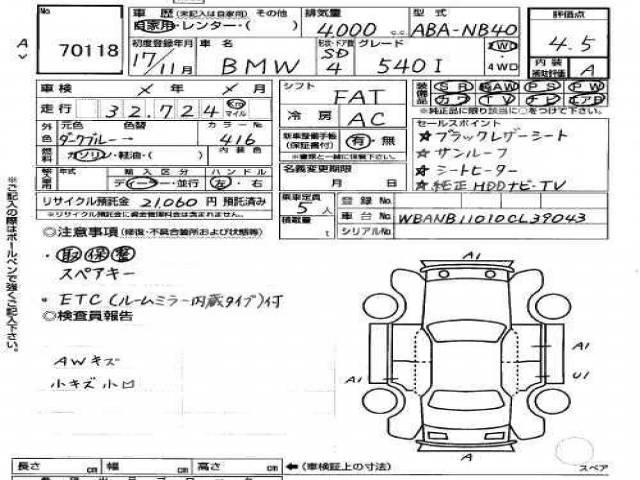 No. 70118
車歴 (未記入は自家用) その他
自家用・レンター・( )
排気量 4,000 c.c.
型式 ABA-NB40
評価点 4.5
内装補助評価 A
初度登録年月 17/11月
車名 BMW
形状・ドア数 SD 4
グレード 540I
2WD・4WD
車検 × 年 × 月
走行 32,724 Km マイル
シフト FAT
冷房 AC
装備品 SR AW PS PW
カワ TV ナビ エアB
※純正品に限り該当に○をつけて下さい。
外色 元色 色替 カラーNo.
ダークブルー → 416
燃料 ガソリン・軽油・( ) 内装色
新車整備手帳(保証書付) 有・無
※書類と一緒に保管して下さい。
セールスポイント
☆ブラックレザーシート
☆サンルーフ
☆シートヒーター
☆純正HDDナビ・TV
年式 輸入区分 ハンドル
ディーラー・並行 左・右
名義変更期限 月 日
リサイクル預託金 21,060 円 預託済み
※リサイクル預託金に資金管理料金は含まれません。
乗車定員 5人
積載量 t
登録No.
車台No. WBANB11010CL39043
シリアルNo.
◎注意事項 (修復・不具合箇所および状態等)
・取保整
スペアキー
・ETC(ルームミラー内蔵タイプ)付
◎検査員報告
AWキズ
小キズ小凹
A1
A1
A1
U1
A
スペア
※ご記入の際はボールペンで強くご記入下さい。
長さ cm 幅 cm 高さ cm ←(車検証上の寸法)